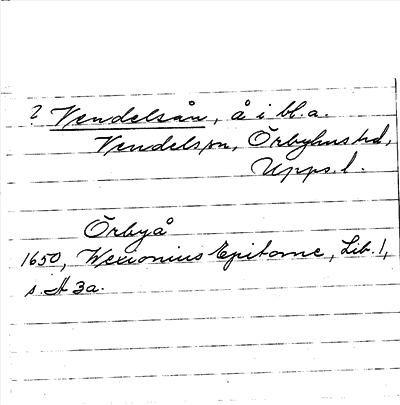 ? Vendelsån, å i bl.a.
Vendels sn, Örbyhus hd,
Upps. l.
Örbyå
1650, Wexionius Epitome, Lib. 1,
s. A 3a.